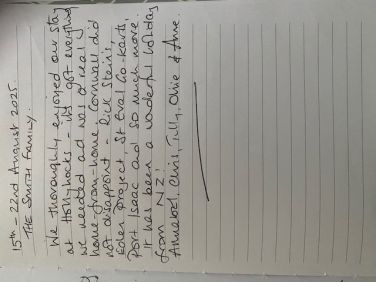 15th - 22nd August 2025.
THE SMITH FAMILY.
We thoroughly enjoyed our stay
at Hollyhocks - it's got everything
we needed and was a real
home-from-home. Cornwall did
not disappoint - Rick Stein's,
Eden Project, St Eval Go-Karts,
Port Isaac and so much more.
It has been a wonderful holiday
from NZ!
Annabel, Chris, Tilly, Ollie & Anne.